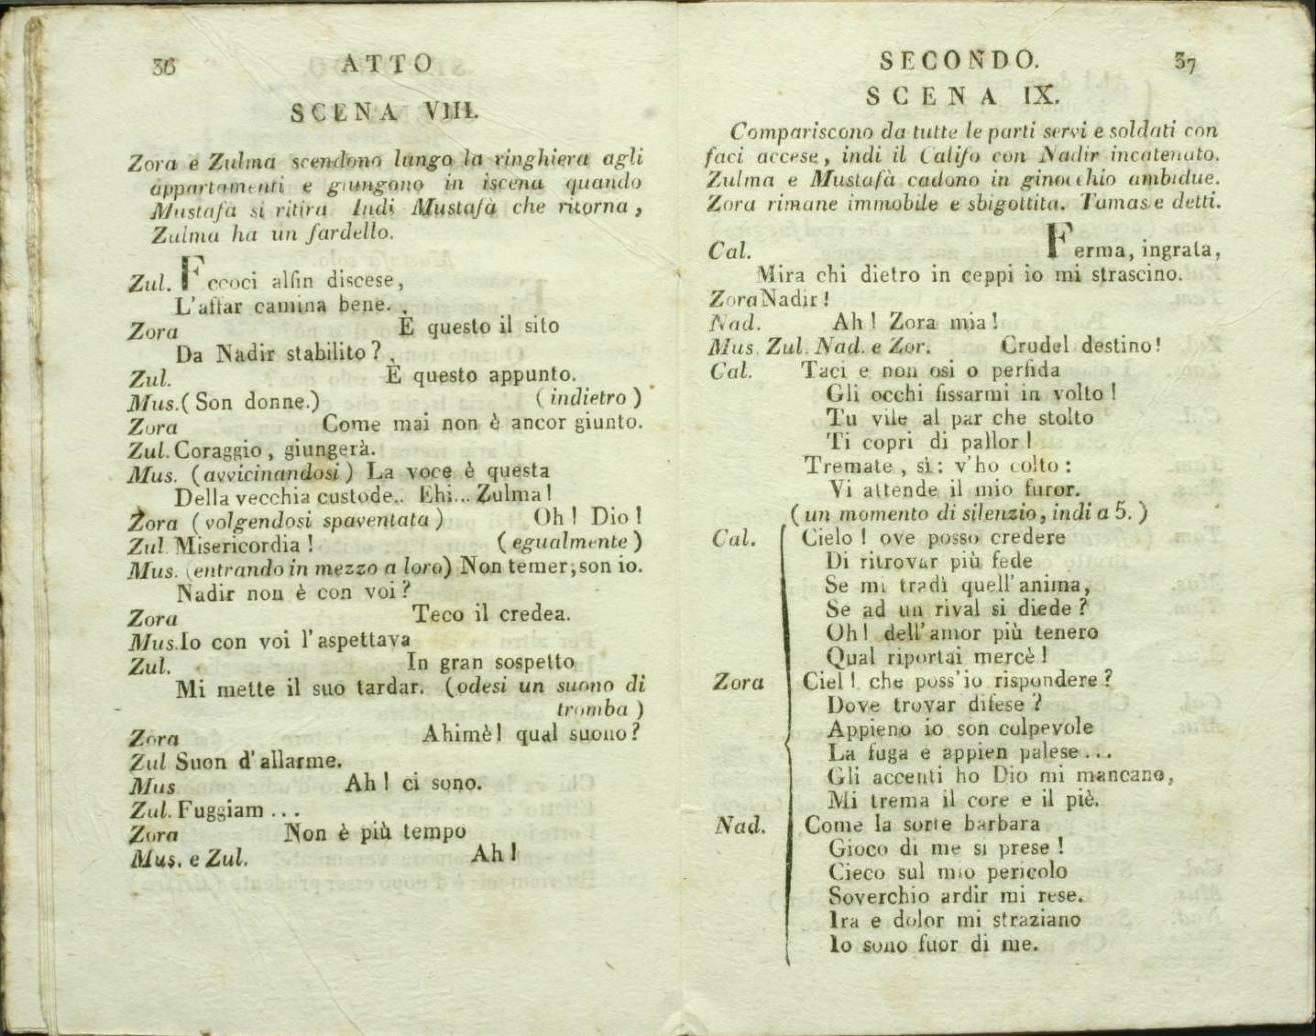 36 ATTO
SCENA VIII.
Zora e Zulma scendono lungo la ringhiera agli
appartamenti e giungono in iscena quando
Mustafà si ritira Indi Mustafà che ritorna,
Zulma ha un fardello.
Zul. Eccoci alfin discese,
L'affar camina bene.
Zora È questo il sito
Da Nadir stabilito?
Zul. È questo appunto.
Mus. (Son donne.) (indietro)
Zora Come mai non è ancor giunto.
Zul. Coraggio, giungerà.
Mus. (avvicinandosi) La voce è questa
Della vecchia custode.. Ehi... Zulma!
Zora (volgendosi spaventata) Oh! Dio!
Zul Misericordia! (egualmente)
Mus. (entrando in mezzo a loro) Non temer; son io.
Nadir non è con voi?
Zora Teco il credea.
Mus. Io con voi l'aspettava
Zul. In gran sospetto
Mi mette il suo tardar. (odesi un suono di
tromba)
Zora Ahimè! qual suono?
Zul Suon d'allarme.
Mus Ah! ci sono.
Zul. Fuggiam ...
Zora Non è più tempo
Mus. e Zul. Ah!
SECONDO. 37
SCENA IX.
Compariscono da tutte le parti servi e soldati con
faci accese, indi il Califo con Nadir incatenato.
Zulma e Mustafà cadono in ginocchio ambidue.
Zora rimane immobile e sbigottita. Tamas e detti.
Cal. Ferma, ingrata,
Mira chi dietro in ceppi io mi strascino.
Zora Nadir!
Nad. Ah! Zora mia!
Mus. Zul. Nad. e Zor. Crudel destino!
Cal. Taci e non osi o perfida
Gli occhi fissarmi in volto!
Tu vile al par che stolto
Ti copri di pallor!
Tremate, sì: v'ho colto:
Vi attende il mio furor.
(un momento di silenzio, indi a 5.)
Cal. Cielo! ove posso credere
Di ritrovar più fede
Se mi tradì quell'anima,
Se ad un rival si diede?
Oh! dell'amor più tenero
Qual riportai mercè!
Zora Ciel! che poss'io rispondere?
Dove trovar difese?
Appieno io son colpevole
La fuga e appien palese...
Gli accenti ho Dio mi mancano,
Mi trema il core e il piè.
Nad. Come la sorte barbara
Gioco di me si prese!
Cieco sul mio pericolo
Soverchio ardir mi rese.
Ira e dolor mi straziano
Io sono fuor di me.